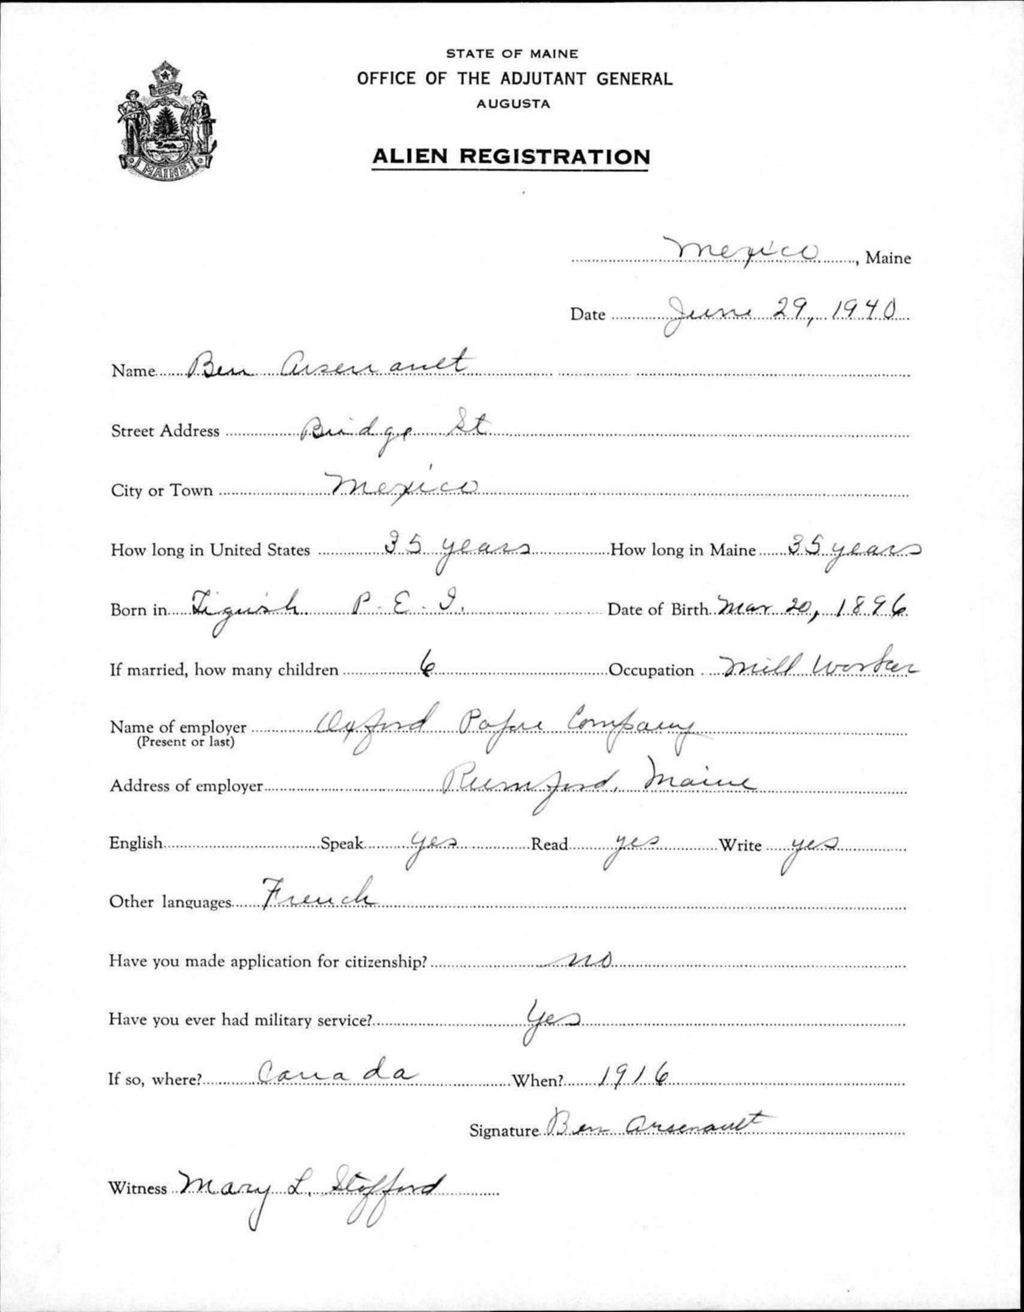 STATE OF MAINE
OFFICE OF THE ADJUTANT GENERAL
AUGUSTA
ALIEN REGISTRATION
MAINE
Mexico, Maine
Date June 29, 1940
Name Ben Arsenault
Street Address Bridge St
City or Town Mexico
How long in United States 35 years How long in Maine 35 years
Born in Tignish P.E.I. Date of Birth Mar 20, 1896
If married, how many children 6 Occupation Mill Worker
Name of employer Oxford Paper Company
(Present or last)
Address of employer Rumford, Maine
English Speak yes Read yes Write yes
Other languages French
Have you made application for citizenship? no
Have you ever had military service? Yes
If so, where? Canada When? 1916
Signature Ben Arsenault
Witness Mary L. Stofford